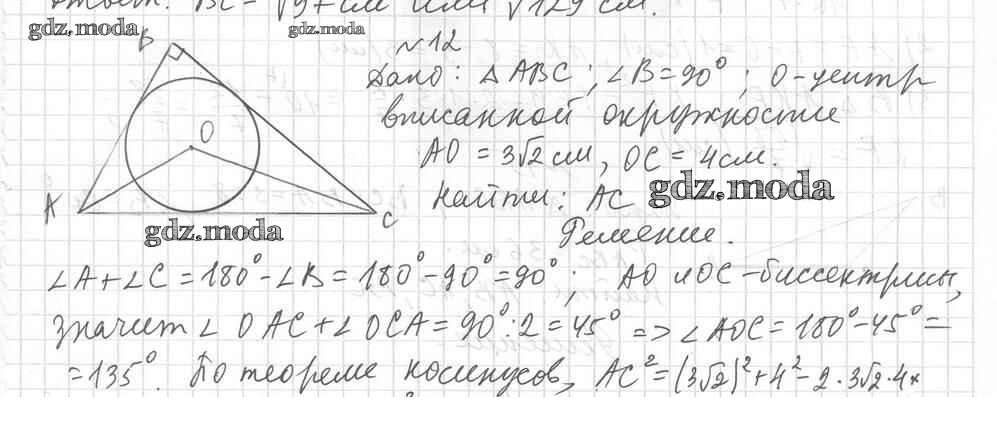 Ответ: BC = √94 см или √129 см.
gdz.moda
gdz.moda
B
N12
Дано: △ABC; ∠B=90°; O-центр
вписанной окружности
O
AO = 3√2 см, OC = 4 см.
gdz.moda
Найти: AC
A
C
gdz.moda
Решение.
∠A+∠C=180°-∠B=180°-90°=90°; AO и OC-биссектрисы,
значит ∠OAC+∠OCA=90°:2=45° => ∠AOC=180°-45°=
=135°. По теореме косинусов, AC²=(3√2)²+4²-2·3√2·4×